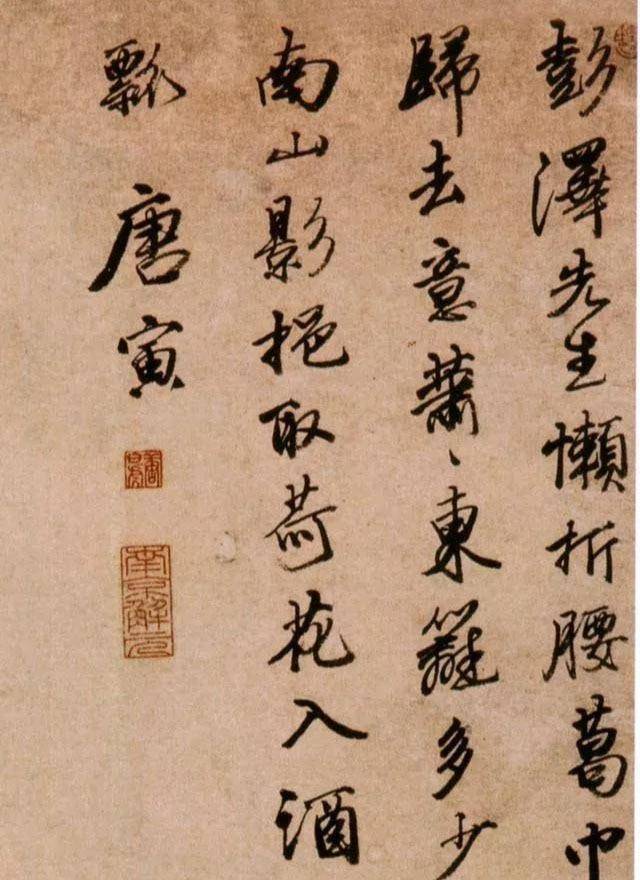 彭澤先生懶折腰葛巾
歸去意蕭〻東籬多少
南山影挹取荷花入酒
瓢 唐寅
南京解元